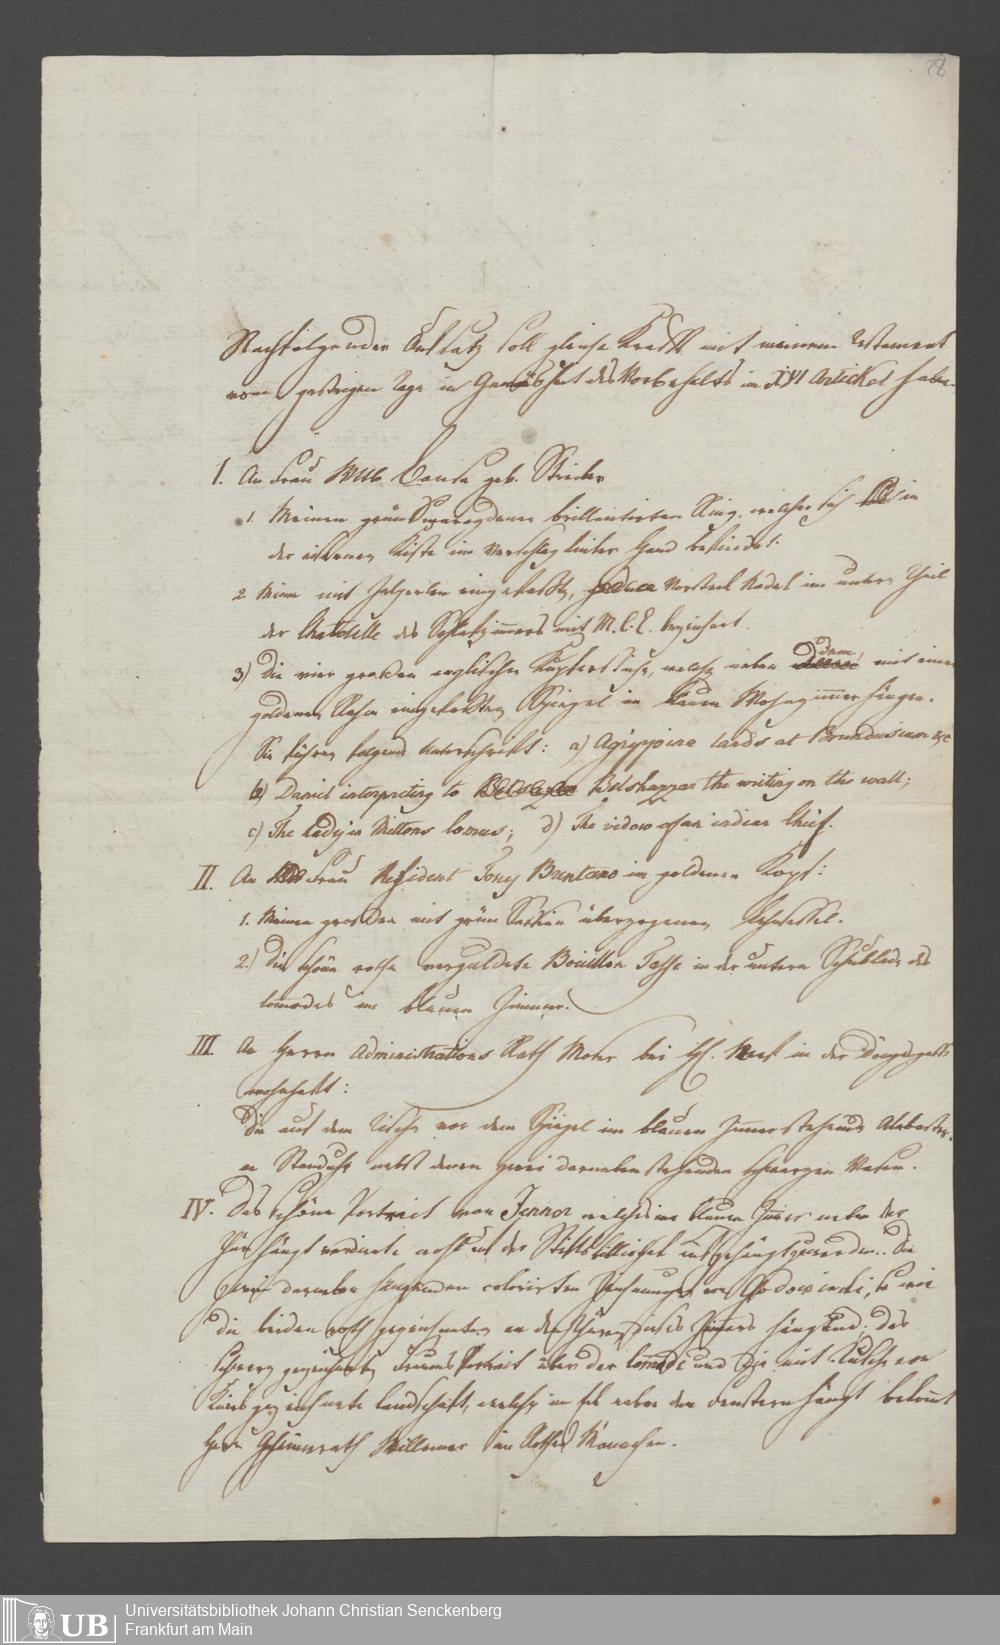 28
Nachfolgender Aufsatz soll gleiche Krafft mit meinem Testament
vom gestrigen Tage in Gemäsheit des Vorbehalts im XVI Artickel haben.
I. An Frau Louisa geb. Stricker
1. Meinen grün Smaragdenen brillantirten Ring, welcher sich in
der eisernen Kiste im Verschlag linker Hand befindet:
2. Meine mit Zalperlen eingefasste, goldene Vorsteck Nadel im untern Theil
der Chatoulle des Schlafzimmers mit M. C. E. bezeichnet.
3) Die vier grossen englischen Kupferstiche, welche neben dem, mit einem
goldenen Rahm eingefassten Spiegel im blauen Wohnzimmer hängen.
Sie führen folgend Unterschrift: a) Agrippina lands at Brundusium &c
b) Daniel interpreting to Belshazzar the writing on the wall;
c) The Lady in Miltons Comus; d) The widow of an indian Chief.
II. An Frau Resident Tony Brentano im goldenen Kopf:
1. Meinen grossen mit grün Saffian überzogenen Lehnsessel.
2.) die schöne rothe verguldete Bouillon Tasse in der untern Schublade des
Comodes im blauen Zimmer.
III. An Herrn Administrations Rath Mohr bei H. in der Döngesgasse
wohnhaft:
Die auf dem Tische vor dem Spiegel im blauen Zimmer stehende Alabaster-
ne Standuhr nebst denen zwei darneben stehenden schwarzen Vasen.
IV. Das schöne Portrait von Jenner welches im blauen Zimer neben der
Thür hängt verdiente wohl in der Stiftsbibliothek aufgehängt zu werden. Die
zwei darneben hangenden colorirten Zeichnungen von Chodowiecki, so wie
die beiden roth gezeichneten an der Thüre dieses Zimers hängend; das
schwarz gezeichnete Frauens Portrait über der Comode und die mit Tusche von
gezeichnete Landschaft, welche im Eck neben dem Fenstern hängt bekomt
Herr Geheimrath Willemer im Rothen Mängen.
Universitätsbibliothek Johann Christian Senckenberg
UB Frankfurt am Main